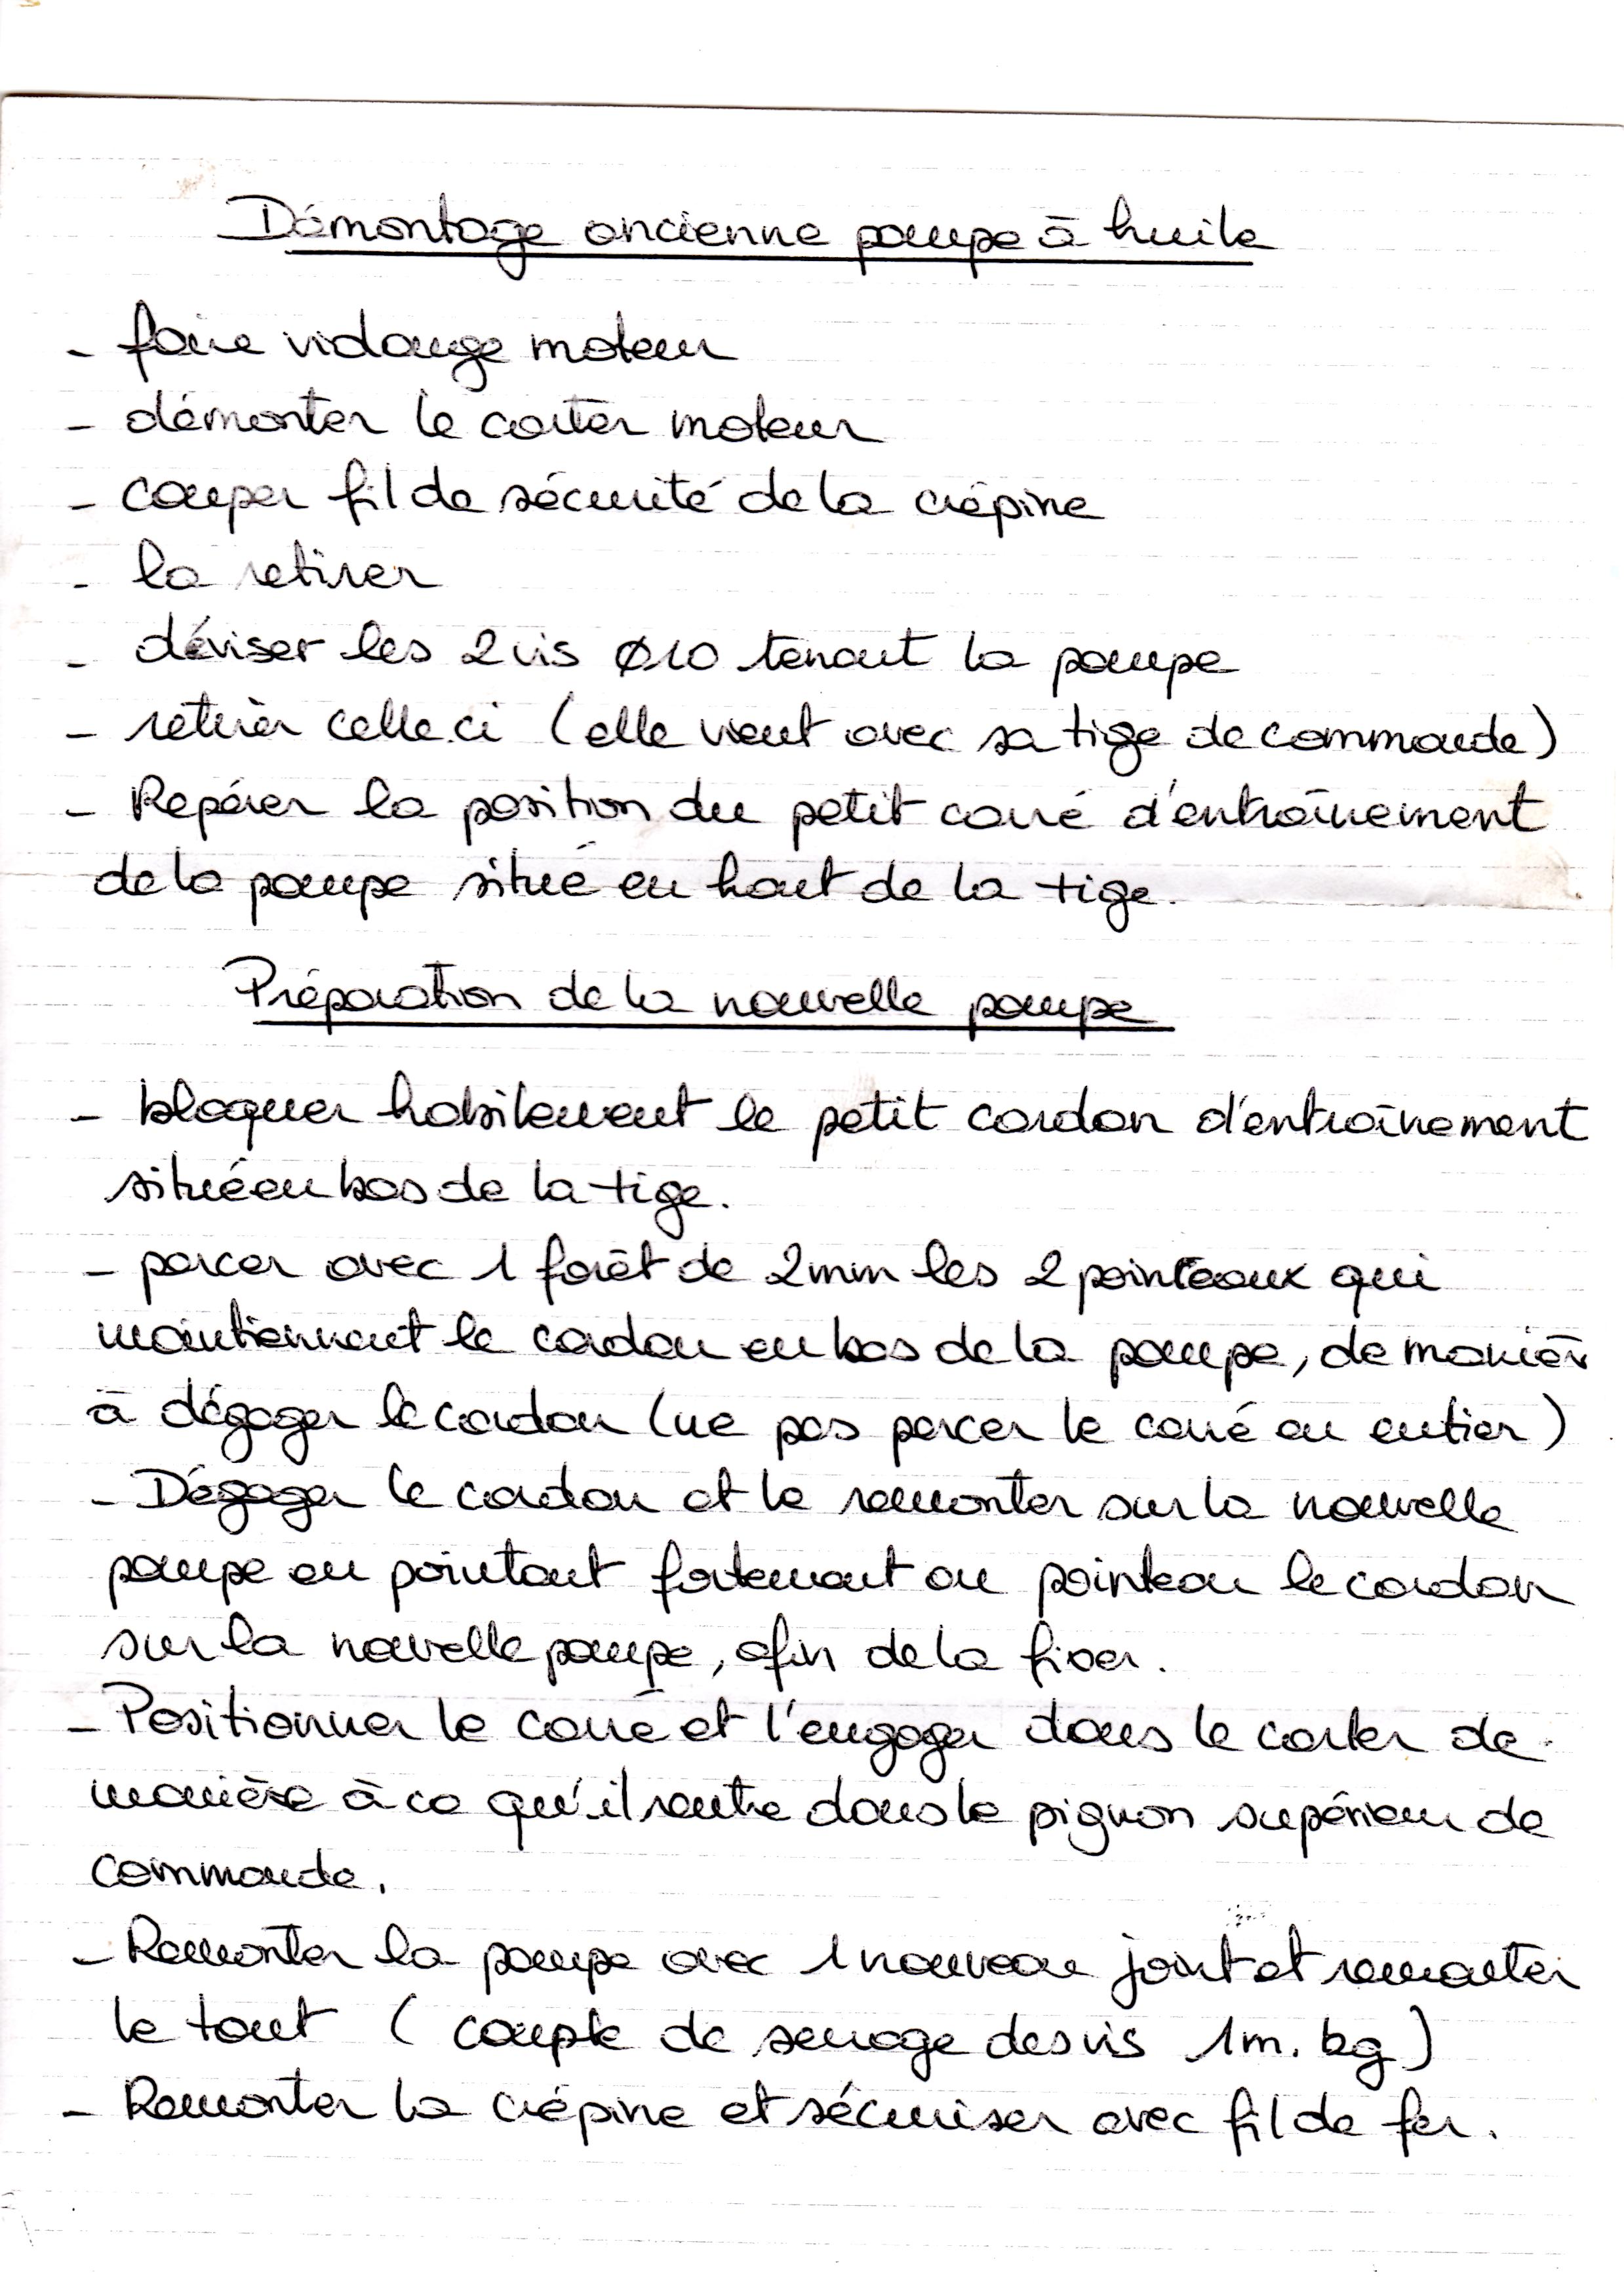 Démontage ancienne pompe à huile
- faire vidange moteur
- démonter le carter moteur
- couper fil de sécurité de la crépine
- la retirer
- déviser les 2 vis Ø10 tenant la pompe
- retirer celle.ci (elle vient avec sa tige de commande)
- Repérer la position du petit carré d'entraînement
de la pompe situé en haut de la tige.
Préparation de la nouvelle pompe
- bloquer habilement le petit cardan d'entraînement
situé en bas de la tige.
- percer avec 1 forêt de 2mm les 2 pointeaux qui
maintiennent le cardan en bas de la pompe, de manièr
à dégager le cardan (ne pas percer le carré en entier)
- Dégager le cardan et le remonter sur la nouvelle
pompe en pointant fortement au pointeau le cardan
sur la nouvelle pompe, afin de la fixer.
- Positionner le carré et l'engager dans le carter de
manière à ce qu'il rentre dans le pignon supérieur de
commande.
- Remonter la pompe avec 1 nouveau joint et remonter
le tout ( couple de serrage des vis 1m. kg)
- Remonter la crépine et sécuriser avec fil de fer.